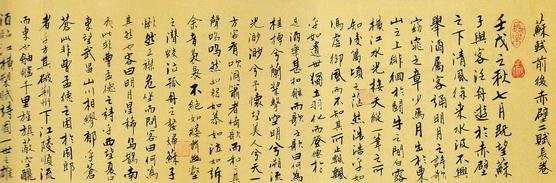 蘇賦前後赤壁二賦長卷
壬戌之秋七月既望蘇
子與客泛舟遊於赤壁
之下清風徐來水波不興
舉酒屬客誦明月之詩歌
窈窕之章少焉月出於東
山之上徘徊於斗牛之間白露
橫江水光接天縱一葦之所
如凌萬頃之茫然浩浩乎如
馮虛御風而不知其所止飄飄
乎如遺世獨立羽化而登仙於
是飲酒樂甚扣舷而歌之歌曰
桂棹兮蘭槳擊空明兮溯流
光渺渺兮予懷望美人兮天一
方客有吹洞簫者倚歌而和之其
聲嗚嗚然如怨如慕如泣如訴
餘音裊裊不絕如縷舞幽壑
之潛蛟泣孤舟之嫠婦蘇子
愀然正襟危坐而問客曰何為
其然也客曰月明星稀烏鵲南
飛此非曹孟德之詩乎西望夏口
東望武昌山川相繆鬱乎蒼
蒼此非曹孟德之困於周郎
者乎方其破荊州下江陵順流
而東也舳艫千里旌旗蔽空釃
酒臨江橫槊賦詩固一世之雄